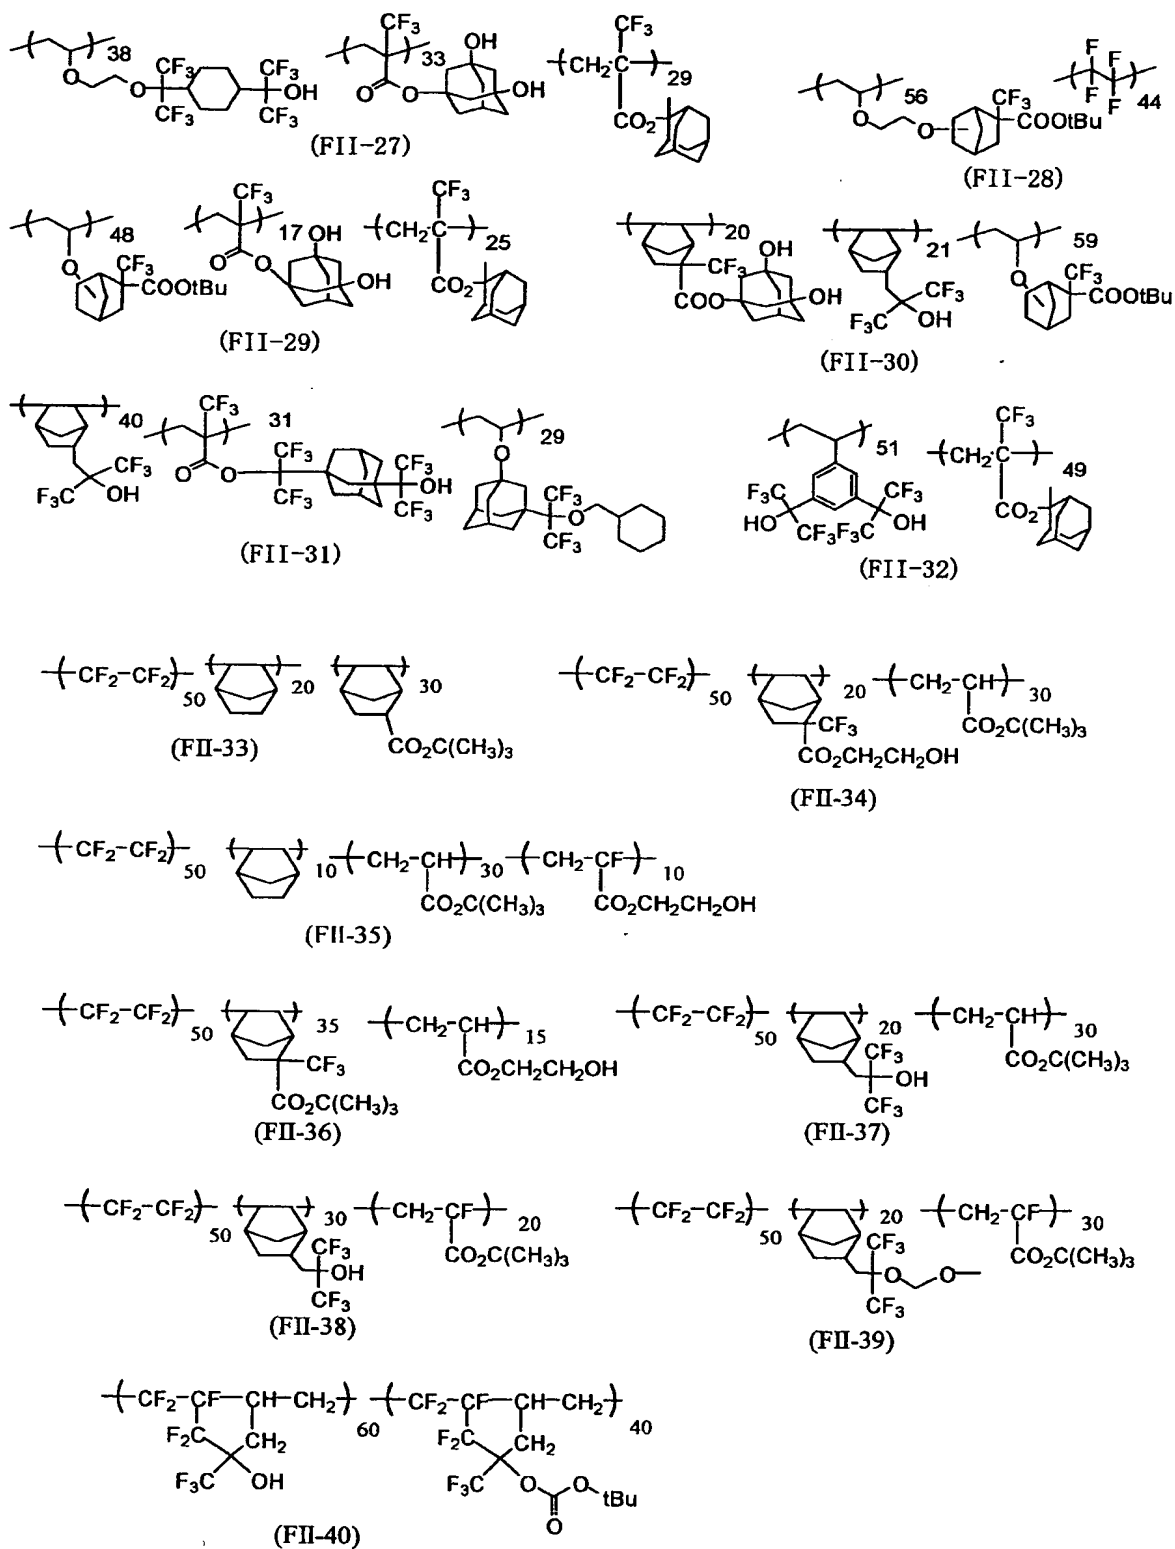 CF3
38
33
OH
CF3
29
F F
44
F F
CF3
CF3
OH
CF3
CF3
O
O
O
O
OH
CH2 C
CO2
56
O
O
CF3
COOtBu
(FII-27)
(FII-28)
48
O
CF3
COOtBu
CF3
17
OH
O
O
OH
CF3
CH2 C
25
CO2
20
CF3
COO
OH
OH
21
CF3
F3C OH
59
O
CF3
COOtBu
(FII-29)
(FII-30)
40
CF3
F3C OH
CF3
31
O
O
CF3
CF3
CF3
OH
CF3
29
O
CF3
O
CF3
51
F3C
HO
CF3F3C
CF3
OH
CF3
CH2-C
49
CO2
(FII-31)
(FII-32)
CF2-CF2
50
20
30
CO2C(CH3)3
(FII-33)
CF2-CF2
50
20
CF3
CO2CH2CH2OH
CH2-CH
30
CO2C(CH3)3
(FII-34)
CF2-CF2
50
10
CH2-CH
30
CO2C(CH3)3
CH2-CF
10
CO2CH2CH2OH
(FII-35)
CF2-CF2
50
35
CF3
CO2C(CH3)3
CH2-CH
15
CO2CH2CH2OH
(FII-36)
CF2-CF2
50
20
CF3
OH
CF3
CH2-CH
30
CO2C(CH3)3
(FII-37)
CF2-CF2
50
30
CF3
OH
CF3
CH2-CF
20
CO2C(CH3)3
(FII-38)
CF2-CF2
50
20
CF3
O
O
CF3
CH2-CF
30
CO2C(CH3)3
(FII-39)
CF2-CF-CH-CH2
60
F2C
CH2
F3C OH
CF2-CF-CH-CH2
40
F2C
CH2
F3C
O
O
tBu
O
(FII-40)